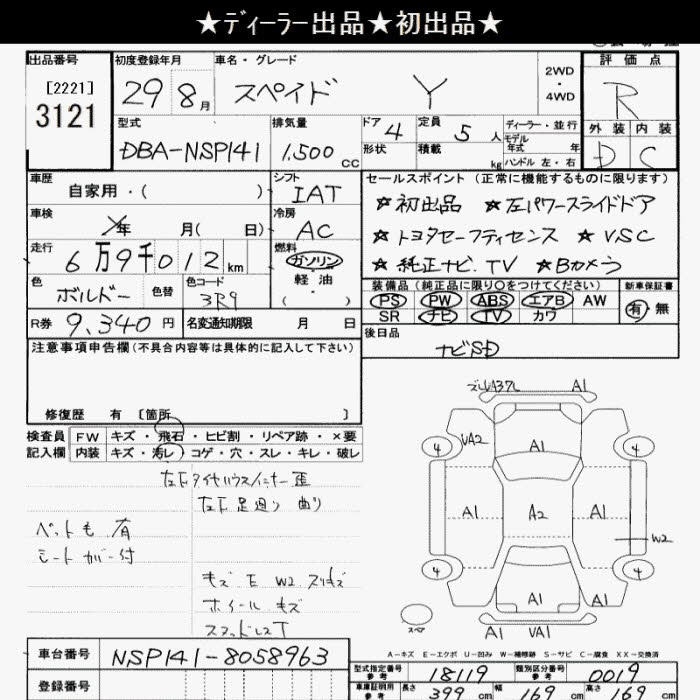 ★ディーラー出品★初出品★
出品番号
[2221]
3121
初度登録年月
29 8月
車名・グレード
スペイド Y
2WD
・
4WD
評価点
R
外装 内装
D C
型式
DBA-NSP141
排気量
1,500cc
ドア 4
形状
定員 5人
積載 kg
ディーラー・並行
モデル年式 年
ハンドル 左・右
車歴
自家用・( )
シフト
IAT
セールスポイント (正常に機能するものに限ります)
☆初出品 ☆左パワースライドドア
☆トヨタセーフティセンス ☆VSC
☆純正ナビ.TV ☆Bカメラ
車検
年 月( 日)
冷房
AC
走行
6万9千012km
燃料
ガソリン
・
軽油
・
( )
色
ボルドー
色替
色コード
3R9
装備品 (純正品に限り○をつけてください)
PS PW ABS エアB AW
SR ナビ TV カワ
新車保証書
有・無
R券 9,340円
名変通知期限 月 日
後日品
ナビSD
注意事項申告欄 (不具合内容等は具体的に記入して下さい)
修復歴 有 〔箇所 〕
検査員記入欄
FW キズ・飛石・ヒビ割・リペア跡・×要
内装 キズ・汚レ・コゲ・穴・スレ・キレ・破レ
左Fタイヤハウスインナー歪
左F足廻り 曲り
ペットも 有
シートカバー付
キズ E W2 スリキズ
ホイール キズ
スタッドレスT
A1
4
VA2
A1
4
A1
A2
A1
W2
4
4
A1
A1
スペア
A1 VA1
A-キズ E-エクボ U-凹み W-補修跡 S-サビ C-腐食 XX-交換済
車台番号
NSP141-8058963
登録番号
型式指定番号 参考 18119
類別区分番号 参考 0019
車庫証明用 参考 長さ 399cm 幅 169cm 高さ 169cm